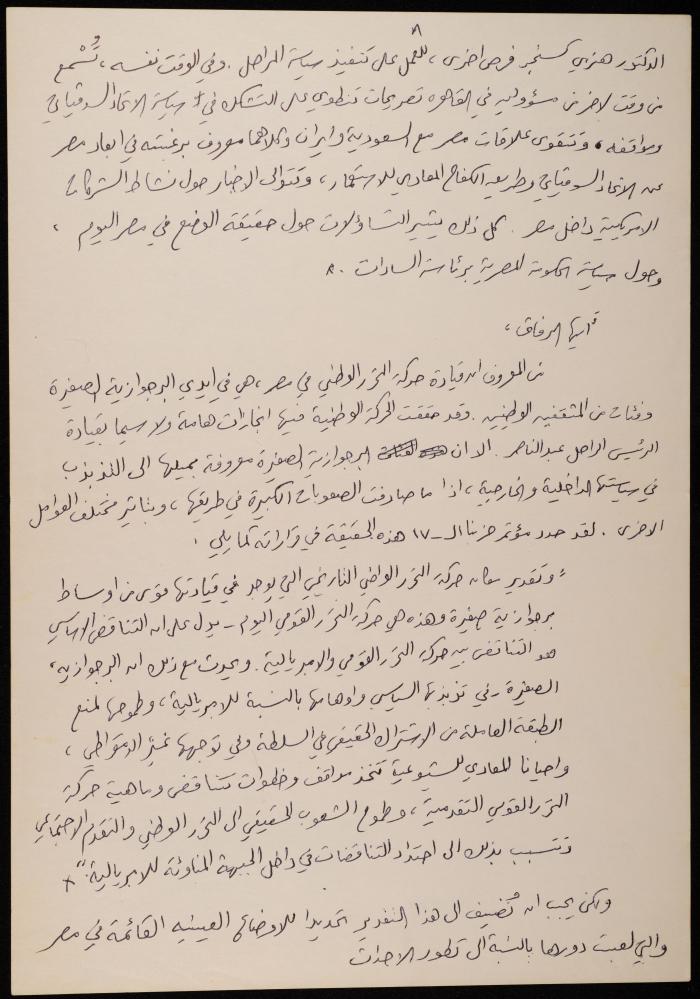 ٨
الدكتور هنري كسنجر فرص اخرى، للعمل على تنفيذ سياسة المراحل. وفي الوقت نفسه، تُسْمع
من وقت لاخر من مسؤولين في القاهره تصريحات تنطوي على التشكك في سياسة الاتحاد السوڤياتي
ومواقفه، وتتقوى علاقات مصر مع السعودية وايران وكلاهما معروف برغبته في ابعاد مصر
عن الاتحاد السوڤياتي وطريق الكفاح المعادي للاستعمار، وتتوالى الاخبار حول نشاط الشركات
الامريكية داخل مصر. كل ذلك يثير التساؤلات حول حقيقة الوضع في مصر اليوم،
وحول سياسة الحكومة المصرية برئاسة السادات.
ايها الرفاق،
من المعروف ان قيادة حركة التحرر الوطني في مصر، هي في ايدي البرجوازية الصغيرة
وفئات من المثقفين الوطنيين. وقد حققت الحركة الوطنية فيها انجازات هامة ولا سيما بقيادة
الرئيس الراحل عبد الناصر. الا ان البرجوازية الصغيرة معروفة بميلها الى التذبذب
في سياستها الداخلية والخارجية، اذا ما صادفت الصعوبات الكبيرة في طريقها، وبتاثير مختلف العوامل
الاخرى. لقد حدد مؤتمر حزبنا الـ-١٧ هذه الحقيقة في قراراته كما يلي.
"وتقدير مكان حركة التحرر الوطني التاريخي التي يوجد في قيادتها قوى من اوساط
برجوازية صغيرة وهذه هي حركة التحرر القومي اليوم - يدل على ان التناقض الاساسي
هو التناقض بين حركة التحرر القومي والامبريالية. ويحدث مع ذلك ان البرجوازية،
الصغيرة - في تذبذبها السياسي واوهامها بالنسبة للامبريالية، وطموحها لمنع
الطبقة العاملة من الاشتراك الحقيقي في السلطة وفي توجهها غير الدمقراطي،
واحيانا المعادي للشيوعية تتخذ مواقف وخطوات تتناقض وماهية حركة
التحرر القومي التقدمية، وطموح الشعوب الحقيقي الى التحرر الوطني والتقدم الاجتماعي
وتتسبب بذلك الى احتداد التناقضات في داخل الجبهة المناوئة للامبريالية."
ولكن يجب ان نُضيف الى هذا التقدير تحديدا للاوضاع العينيه القائمة في مصر
والتي لعبت دورها بالنسبة الى تطور الاحداث